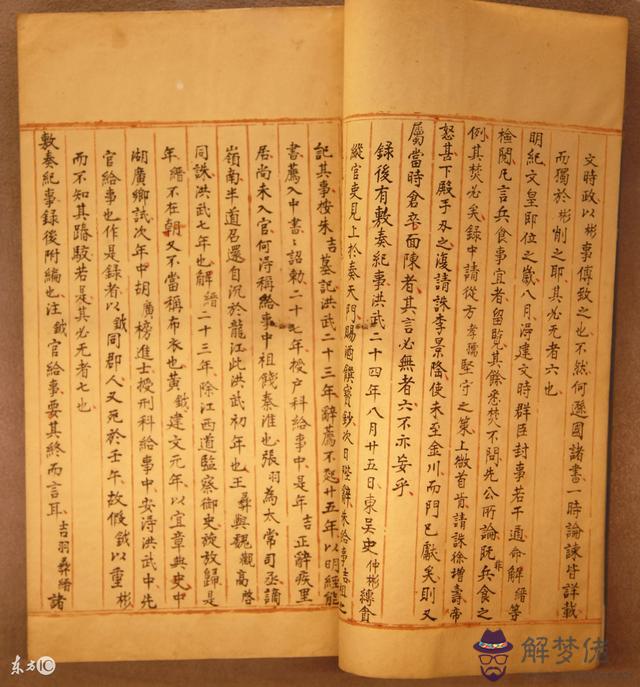 文時政以彬事傅致之也不然何遜國諸書一時論諫皆詳載
而獨於彬削之耶其必无者六也
明紀文皇即位之歲八月淂建文時群臣封事若干通命解縉等
檢閱凡言兵食事宜者留覧其餘悉焚不問先公所論既非兵食之
例其焚必矣録中請從方孝孺堅守之策上微首肯請誅徐增壽帝
怒甚下殿手刃之復請誅李景隆使未至金川而門已獻矣則又
屬當時倉卒面陳者其言必無者六不亦妄乎
録後有敷奏紀事洪武二十四年八月廿五日東吴史仲彬縳貪
縱官吏見上於奏天門賜酒饌寳鈔次日陛辞朱給事吉祖之
記其事桉朱吉墓記洪武二十三年辭薦不起廿五年以明經能
書薦入中書〻詔勅二十七年授户科給事中是年吉正辭疾里
居尚未入官何淂稱給事中祖餞秦淮也張羽為太常司丞謫
嶺南半道召還自沉於龍江此洪武初年也王彝與魏觀高啓
同誅洪武七年也解縉二十三年除江西道監察御史旋放歸是
年縉不在朝又不當稱布衣也黄鉞建文元年以宜章典史中
湖廣鄉試次年中胡廣榜進士授刑科給事中安淂洪武中先
官給事也作是録者以鉞同郡人又死於壬年故假鉞以重彬
而不知其踳駮若是其必无者七也
敷奏紀事録後附編也注鉞官給事要其終而言耳吉羽彝縉諸
解梦佬
东方IC